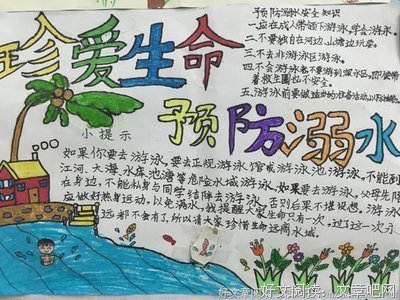 珍爱生命
预防溺水安全知识
一、应在成人带领下游泳,学会游泳。
二、不要独自在河边、山塘边玩耍。
三、不去非游泳区游泳。
四、不会游泳者,不要游到深水区,即使带
着救生圈也不安全。
五、游泳前要做适当的准备活动,以防抽筋。
预防溺水
小提示
如果你要去游泳,要去正规游泳馆或游泳池游泳,不能到
江河、大海、水库、池塘等危险水域游泳,如果要去游泳,父母先陪
在身边,不能私身与同学结伴去游泳,否则后果不堪设想。游泳
应做好热身运动,以免满水。我提醒大家生命只有一次,过了这一次永
远都不会有了,所以请大家珍惜生命远离水域。
好文阅读:文章吧网